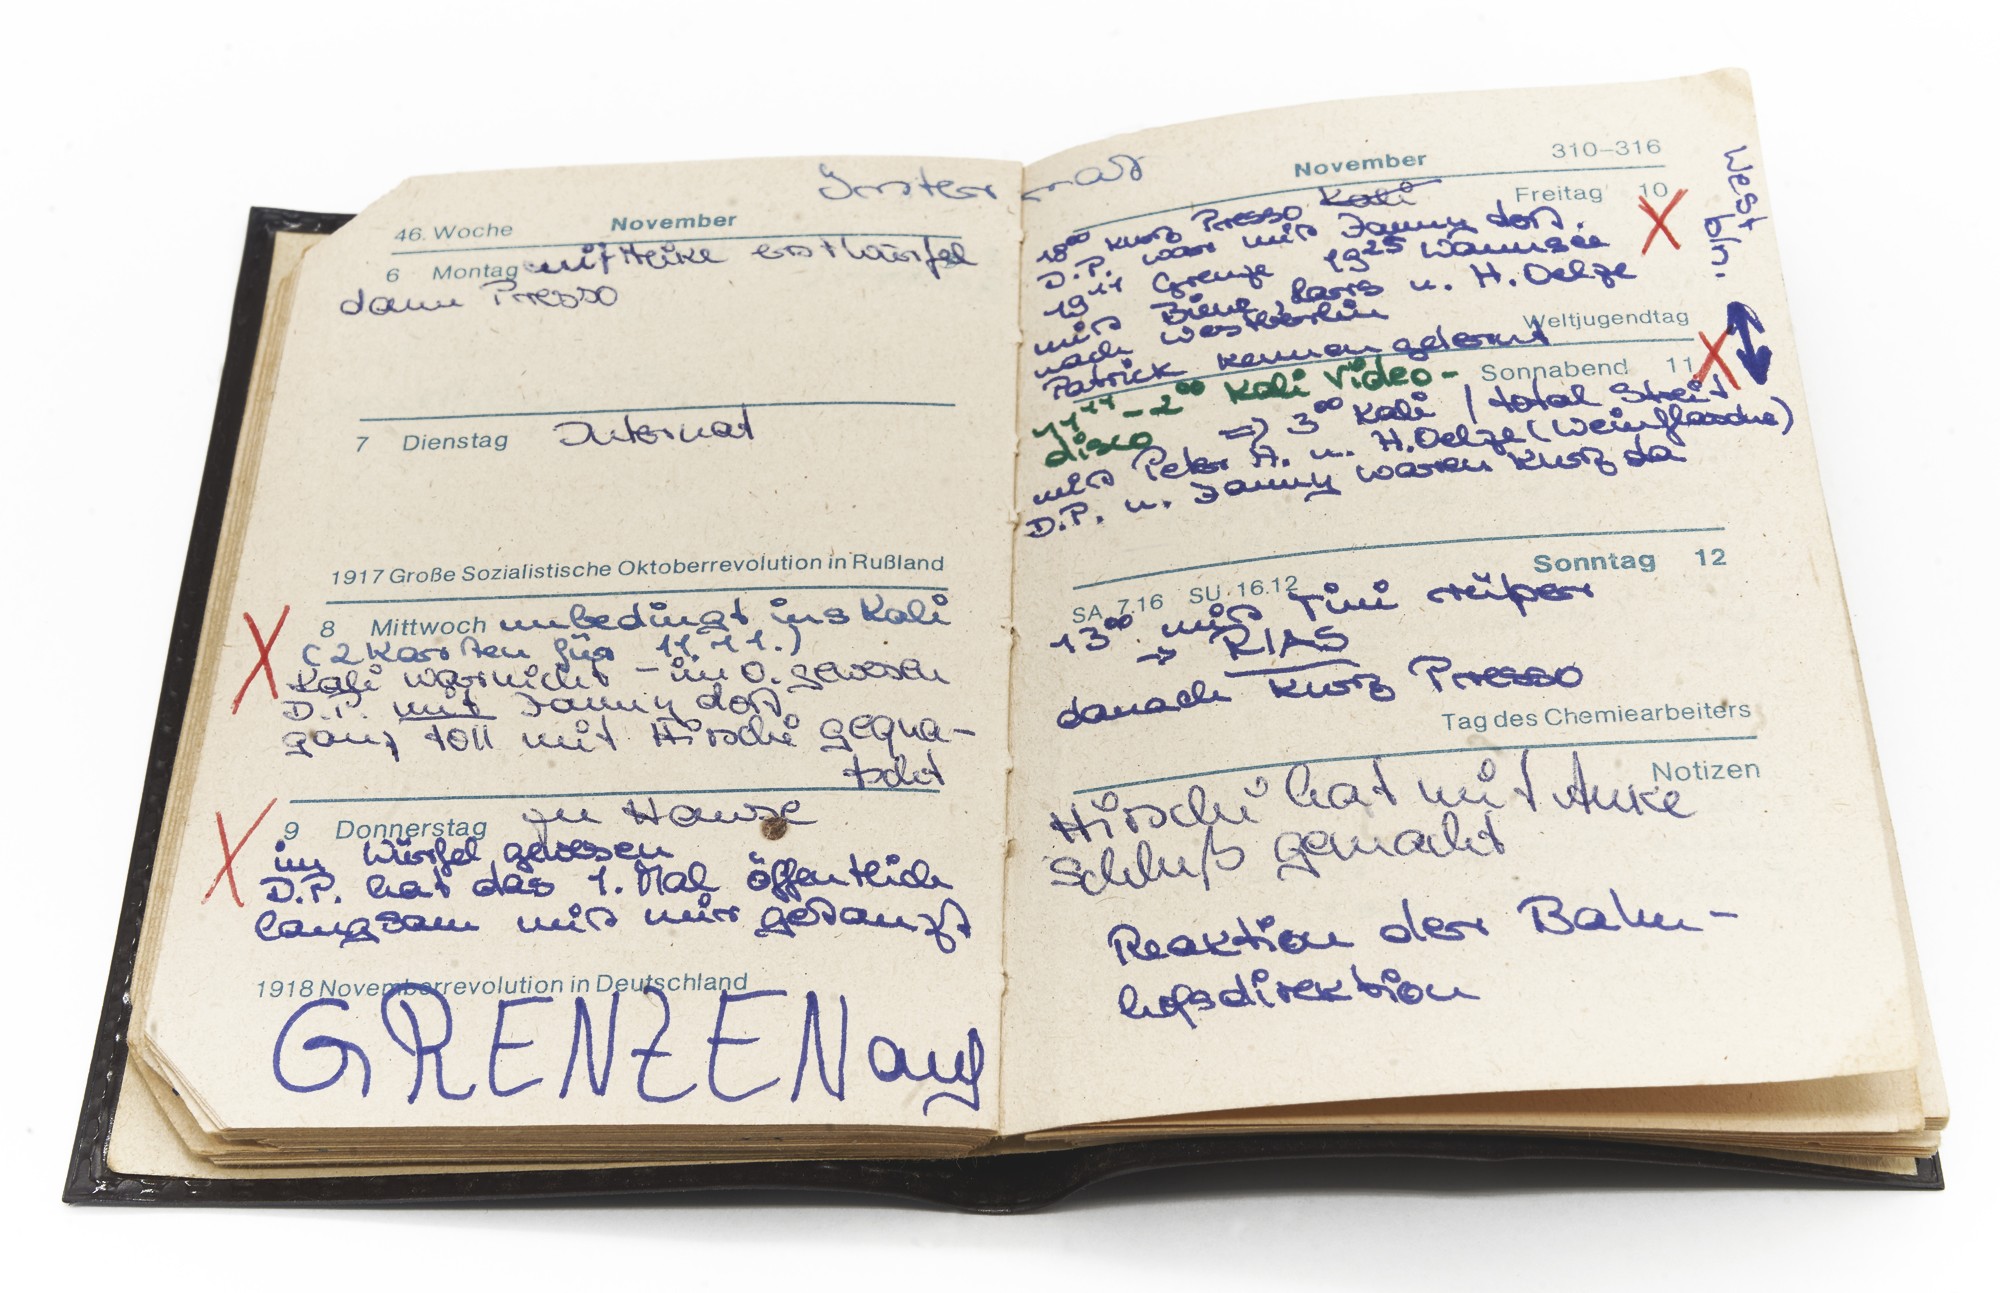 Internat
46. Woche November
6 Montag mit Heike erst Würfel
dann Presso
7 Dienstag Internat
1917 Große Sozialistische Oktoberrevolution in Rußland
8 Mittwoch unbedingt ins Kali
(2 Karten für 11.11.)
Kali war nicht – im O. gewesen
D.P. mit Janny dort
ganz toll mit Hirschi gequa-
tscht
9 Donnerstag zu Hause
im Würfel gewesen
D.P. hat das 1. Mal öffentlich
langsam mit mir getanzt
1918 Novemberrevolution in Deutschland
GRENZEN auf
November 310–316
Freitag 10
18⁰⁰ kurz Presso Kali
D.P. war mit Janny dort.
19¹¹ Grenze 19²⁵ Wannsee
mit Biene, Lars u. H. Oelze
nach Westberlin
Weltjugendtag
Patrick kennen gelernt
West
bln.
Sonnabend 11
– 2⁰⁰ Kali Video-
disco => 3⁰⁰ Kali / total Streit
mit Peter A. u. H. Oelze (Weinflasche)
D.P. u. Janny waren kurz da
Sonntag 12
SA 7.16 SU 16.12
13⁰⁰ mit Tini rüber
→ RIAS
danach kurz Presso
Tag des Chemiearbeiters
Notizen
Hirschi hat mit Anke
Schluß gemacht
Reaktion der Bahn-
hofsdirektion